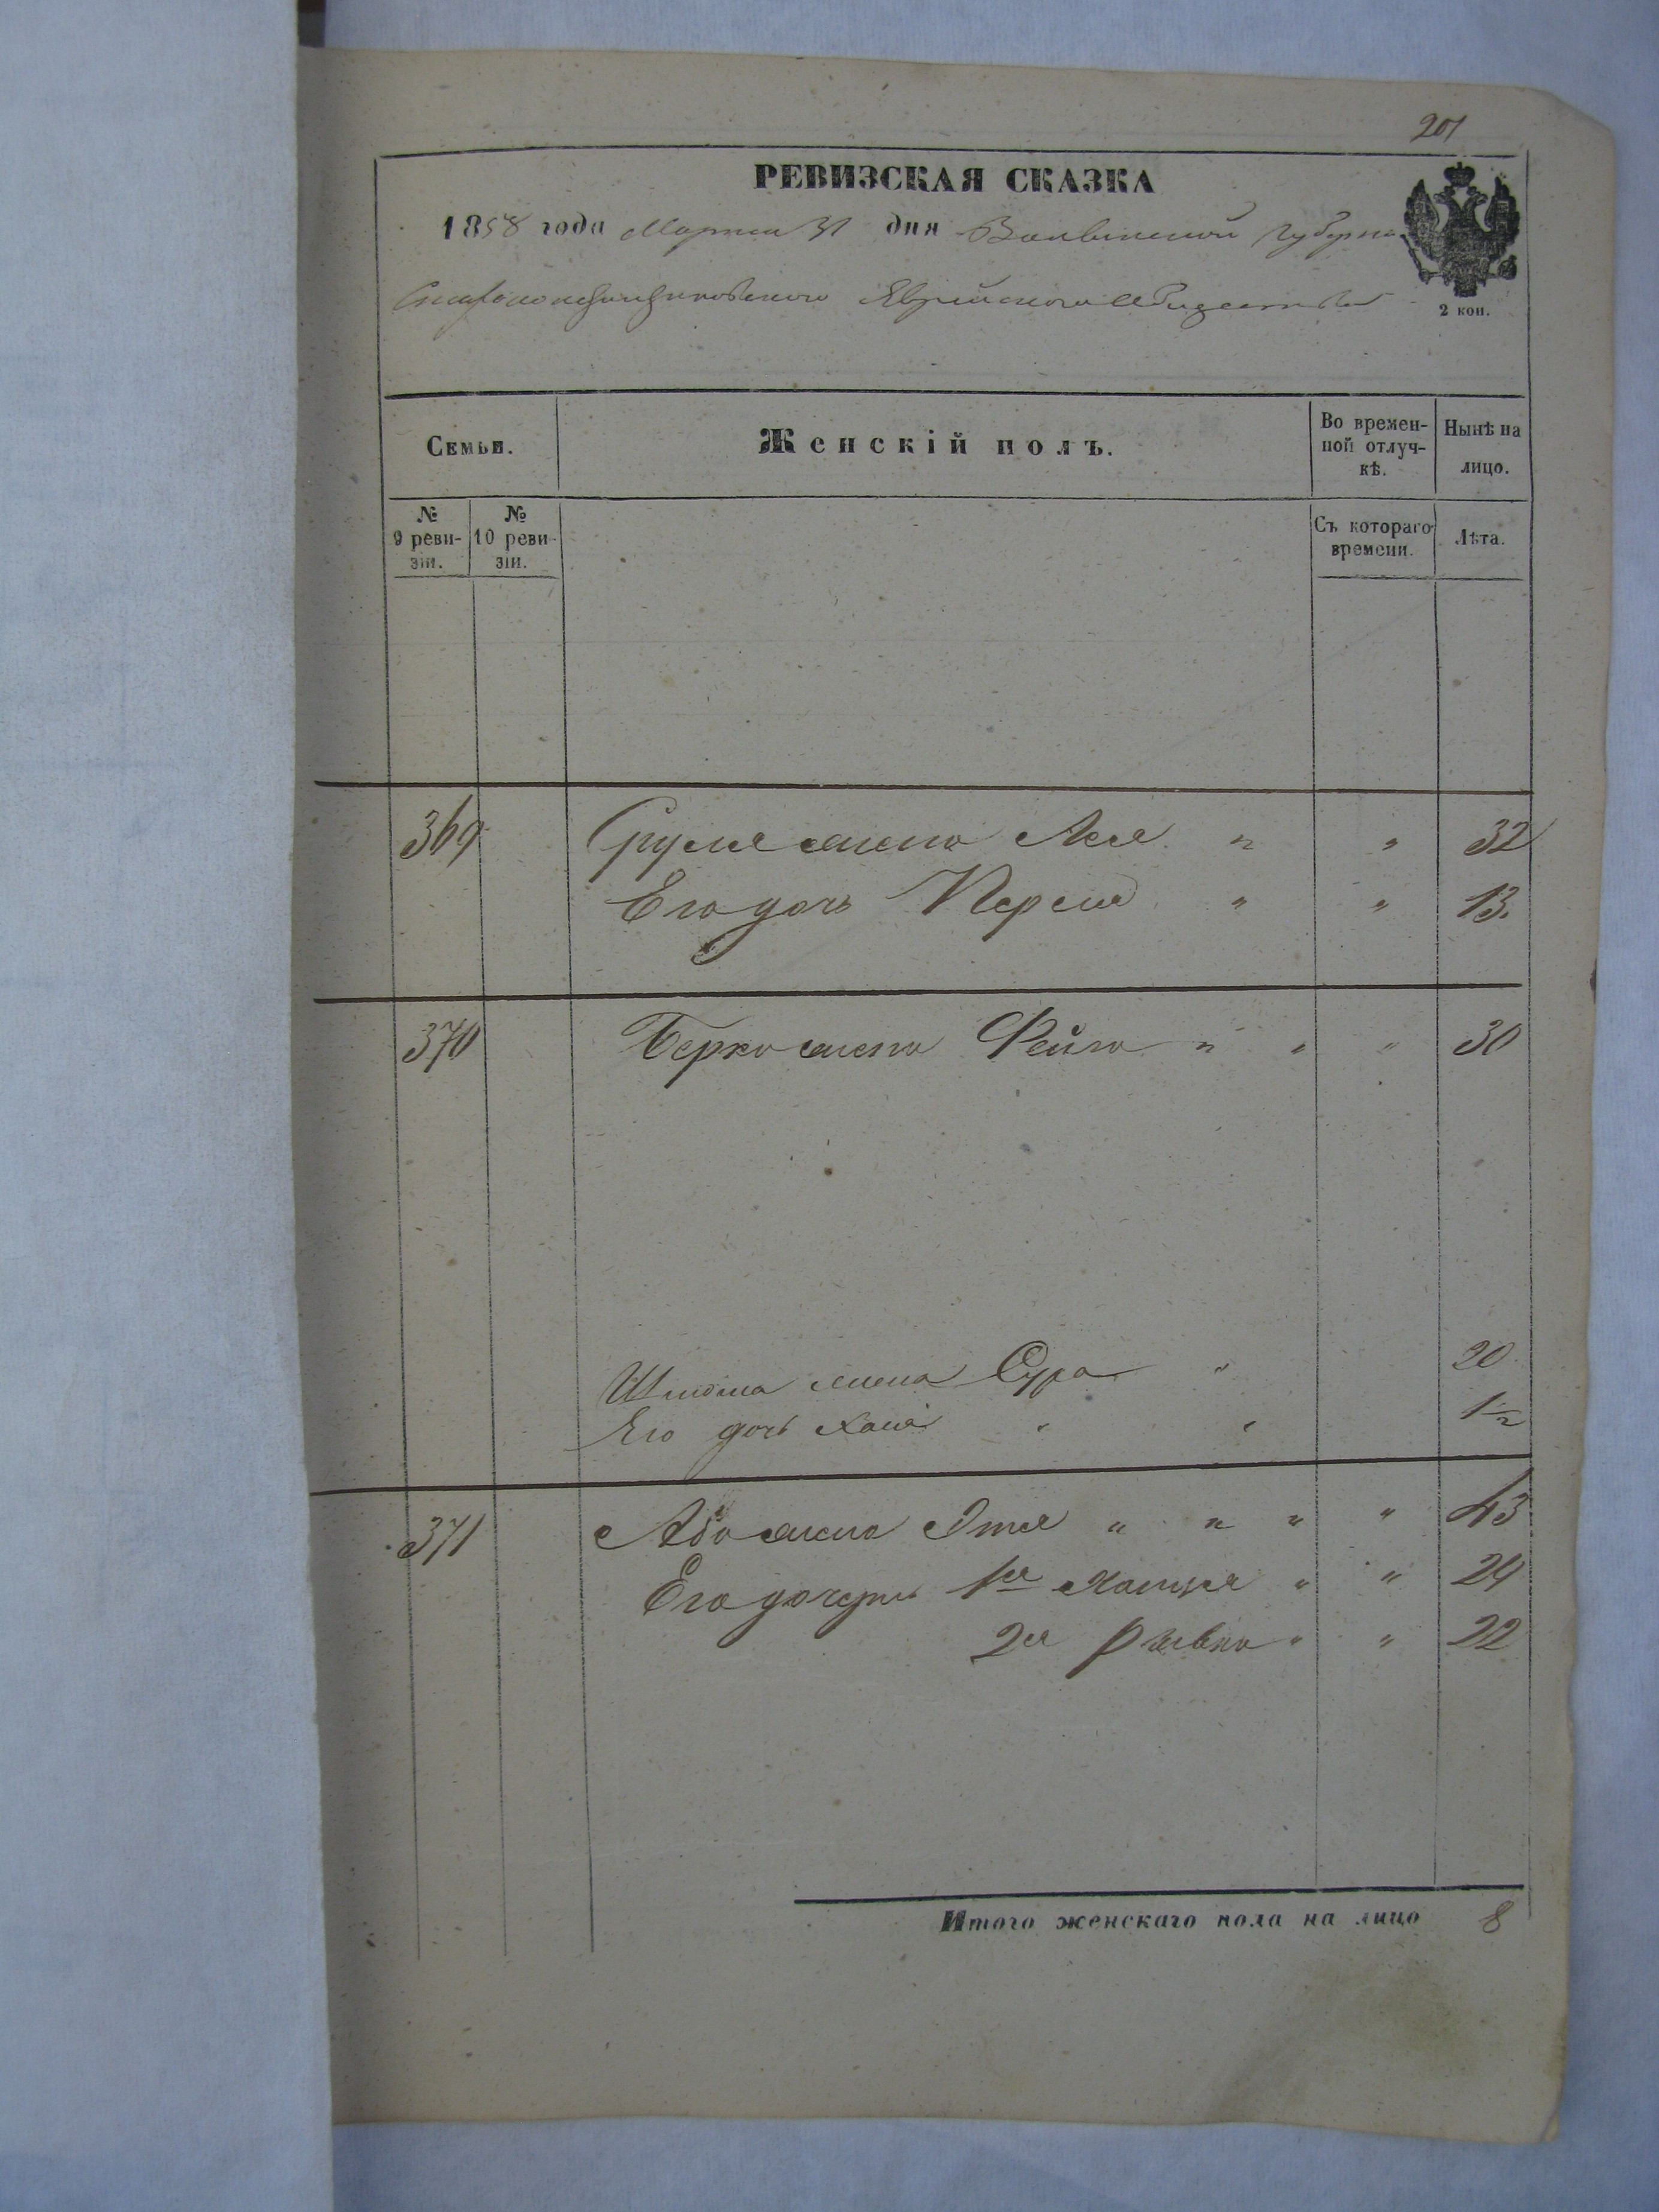 201
РЕВИЗСКАЯ СКАЗКА
1858 года Марта 31 дня Волынской Губерни
Староконстантиновского Еврейского Общества
2 коп.
Семьи.
Женскій полъ.
Во времен-
ной отлуч-
кѣ.
Нынѣ на
лицо.
№
9 реви-
зіи.
№
10 реви-
зіи.
Съ котораго
времени.
Лѣта.
369 Сруля жена Лея " " 32
Его дочь Перля " " 13.
370 Берко жена Фейга " " " 30
жена Сура " 20
Его дочь Хая " " 1½
371 Або жена Этя " " " " 43
Его дочери 1я " " 24
2я Рывка " " 22
Итого женскаго пола на лицо 8